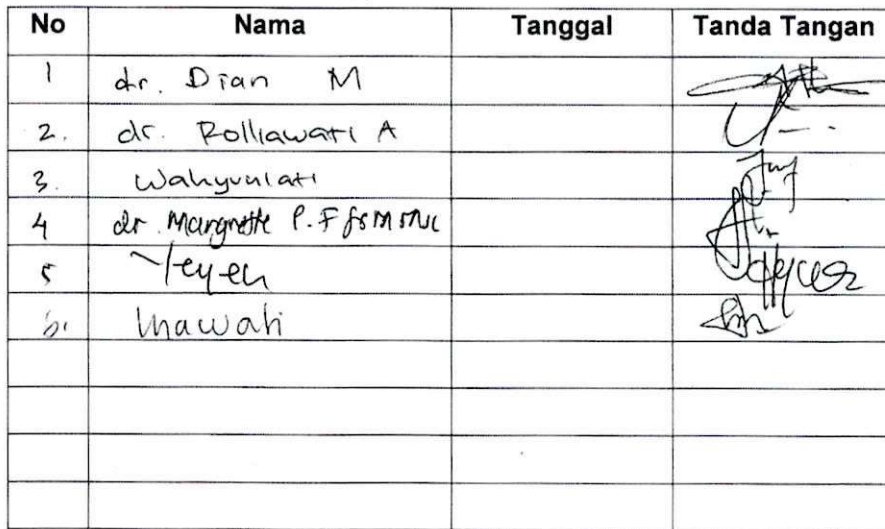 No Nama Tanggal Tanda Tangan
1 dr. Dian M
2. dr. Rolliawati A
3. Wahyunlati
4 dr. Margrette P. F
5 Yeyen
6.